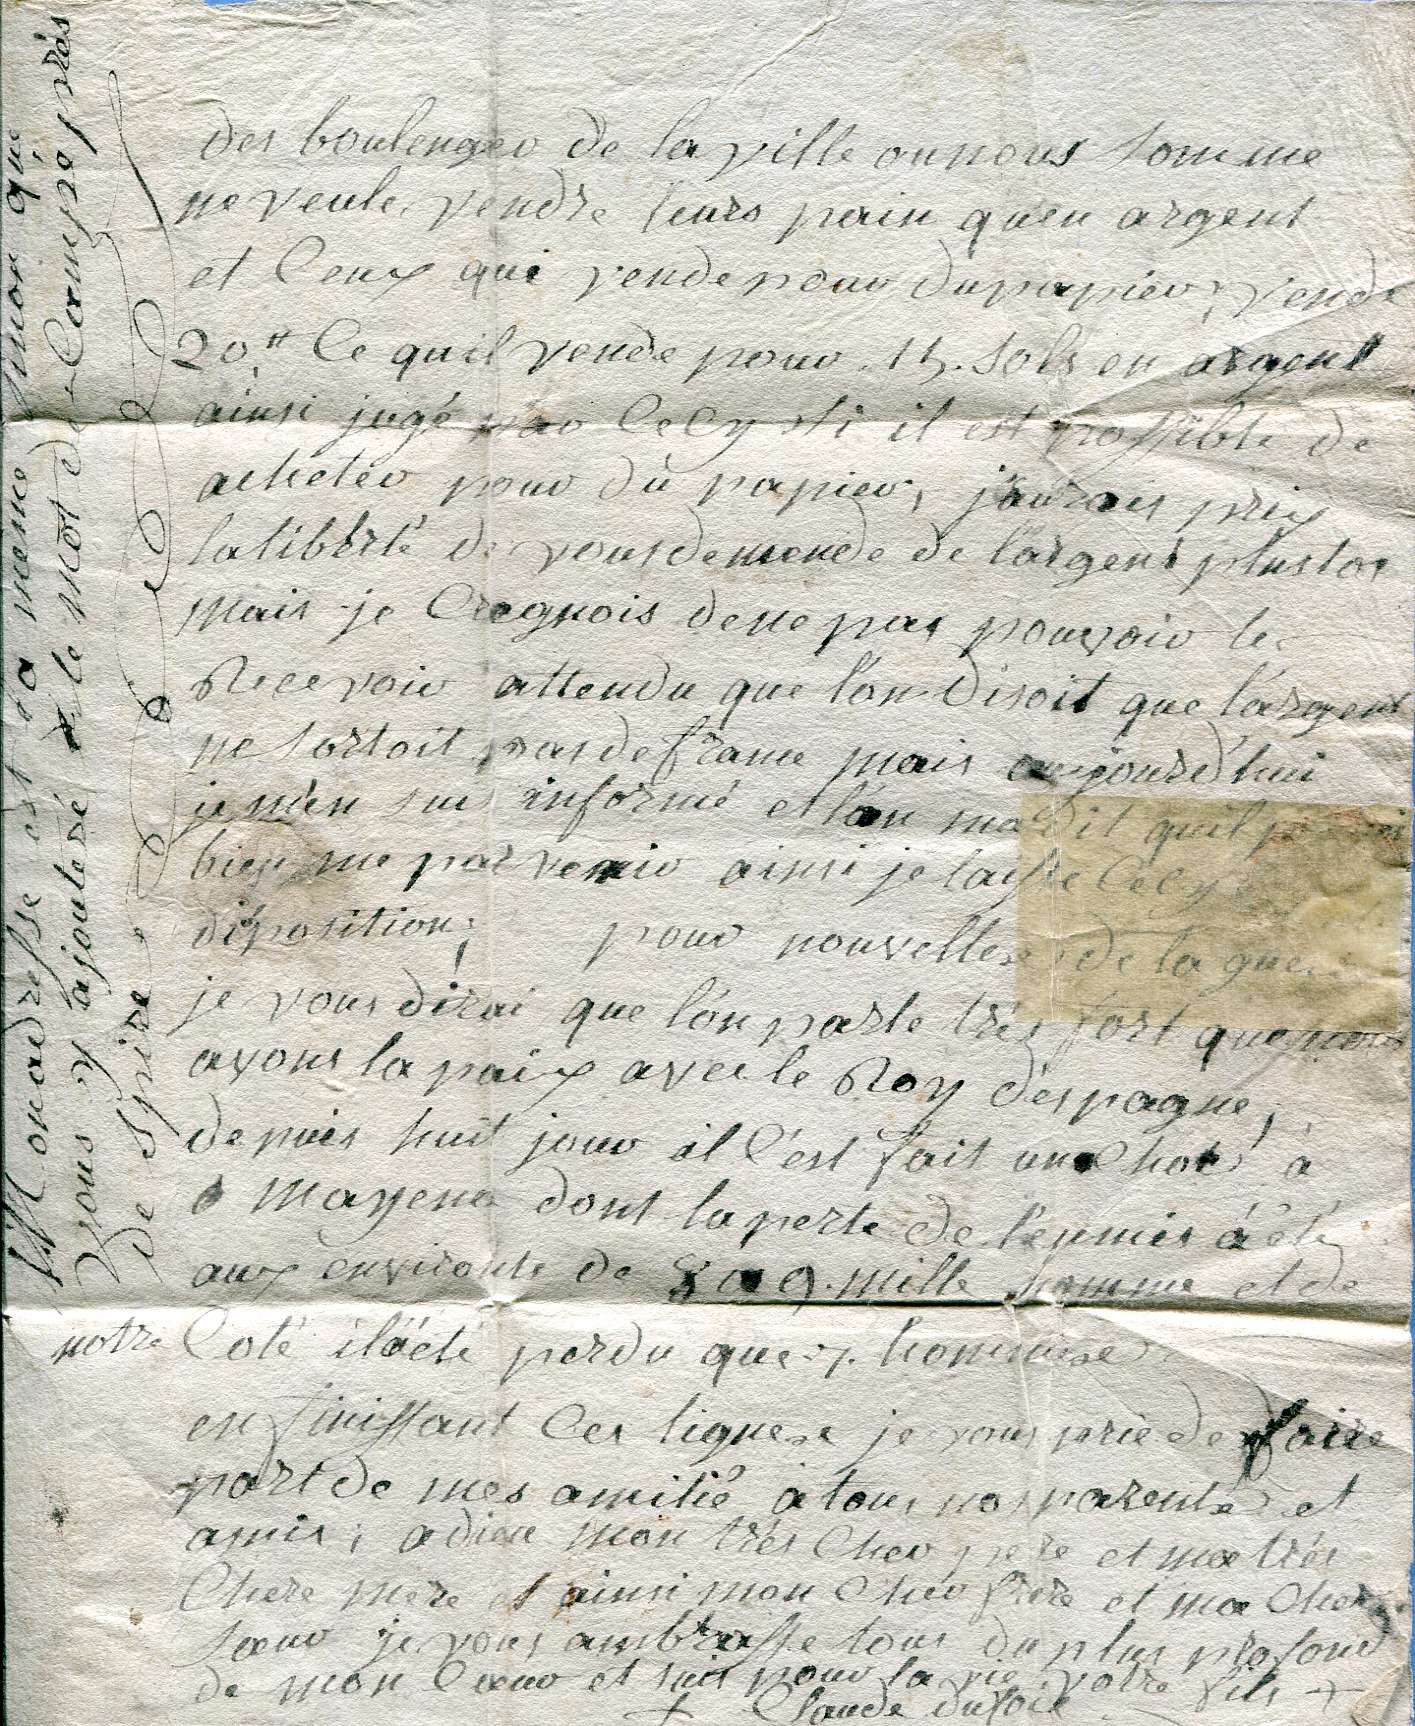 des boulenger de la ville ou nous somme
ne veule vendre leurs pain quen argent
et Ceux qui vende pour du papier, vende
20.tt Ce quil vende pour .15. sols en argent
ainsi jugé par Cecy si il est possible de
acheter pour du papier, jaurois prix
la liberté de vous demende de l'argent plustos
mais je Cregnois de ne pas pouvoir le
Recevoir attendu que l'on disoit que l'argent
ne sortoit pas de france mais aujourd'hui
je m'en suis informé et l'on ma dit quil
bien me parvenir ainsi je laisse Cecy
disposition; pour nouvelles de la
je vous dirai que l'on parle trés fort que nous
avons la paix avec le Roy d'espagne;
depuis huit jour il C'est fait un Choc à
mayence dont la perte de l'ennemis à été
aux environts de 8 a 9. mille homme et de
notre Coté il à été perdu que 7. hommese
en finissant Ces lignese je vous prie de faire
part de mes amitié à tous nos parents et
amis; adieu mon trés Cher pere et ma trés
Chere mere et ainsi mon Cher frere et ma Chere
sœur je vous ambrasse tous du plus profond
de mon Cœur et suis pour la vie votre fils +
+ Claude
Mon adresse est la meme sinon que
vous y ajouteré le mot de Campé prés
de Spire